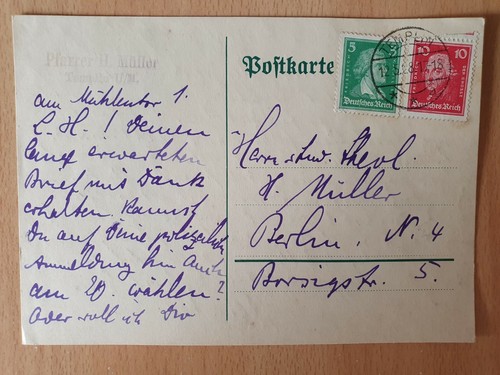 Pfarrer D. Müller
Postkarte
5
Deutsches Reich
10
10
Deutsches Reich
am Mühlentor 1.
L. H.! Deinen
lang erwarteten
Brief mit Dank
erhalten. Kannst
Du auf Deine polizeilich
Anmeldung hin auch
am 20. wählen?
Oder soll ich Dir
Herrn stud. theol.
H. Müller
Berlin. N. 4
Borsigstr. 5.